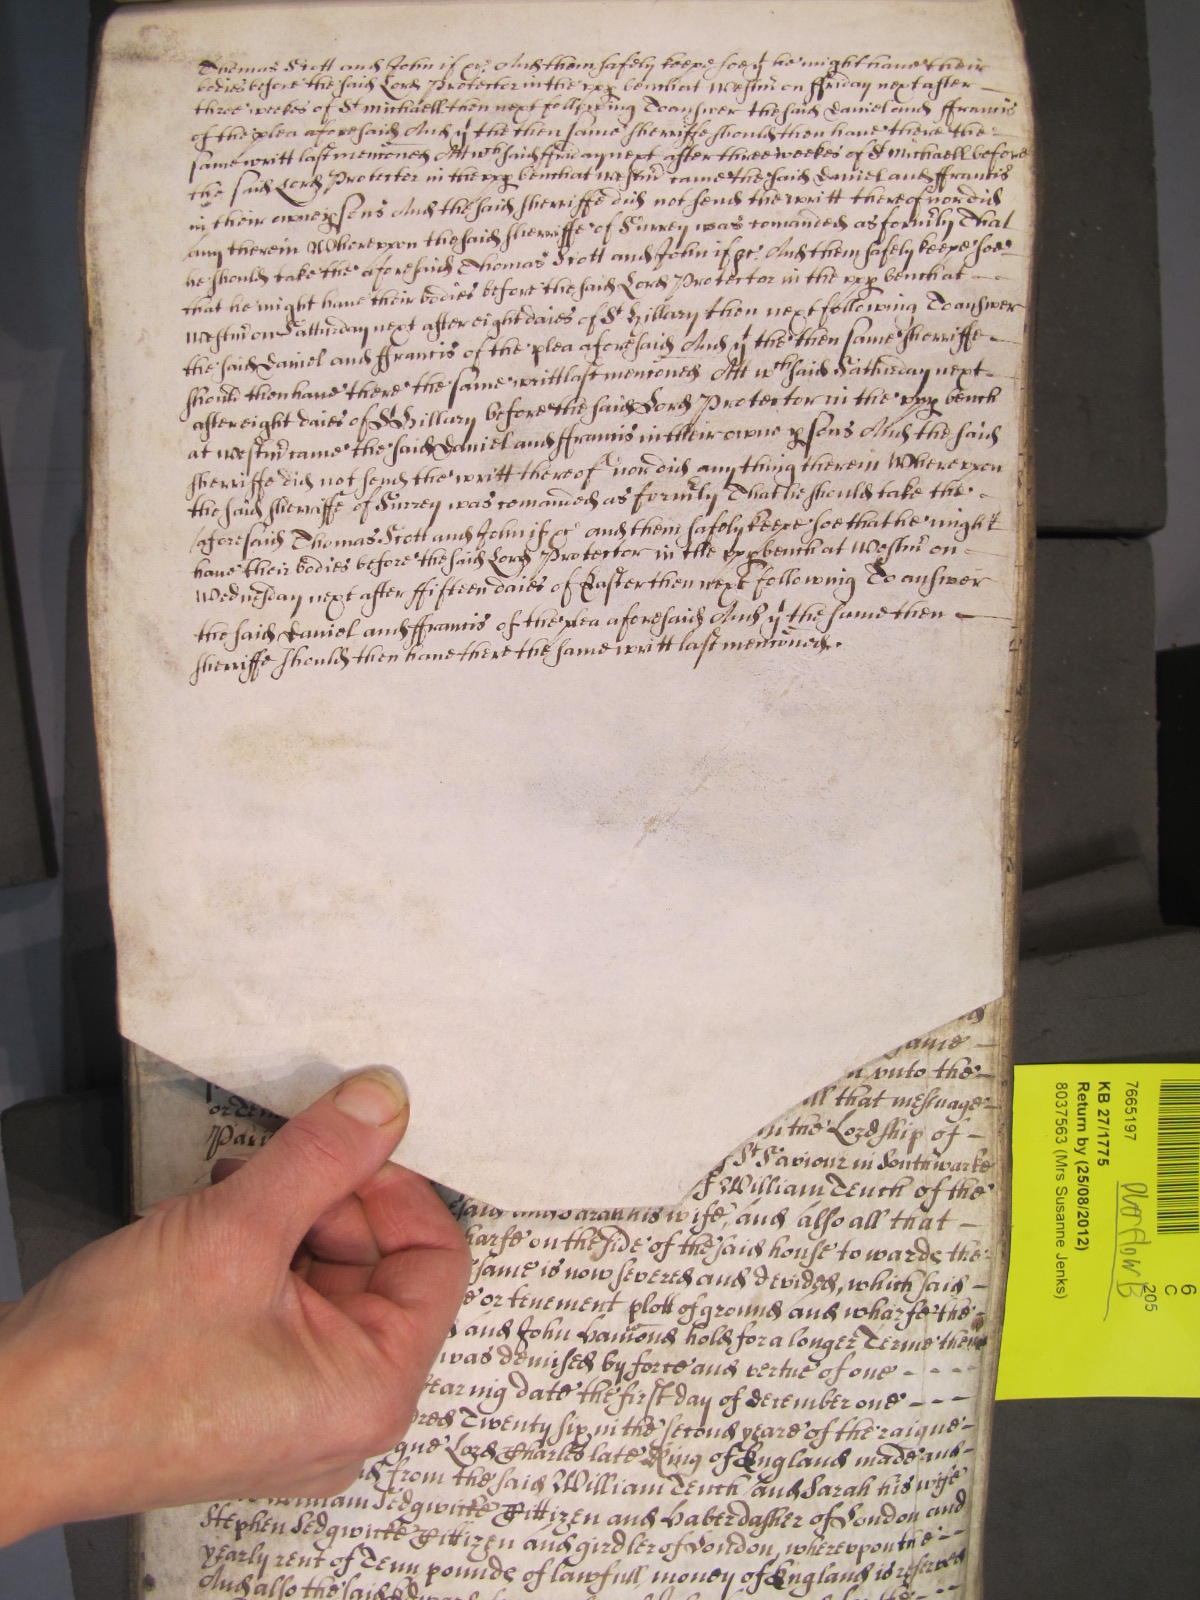 Thomas Scott and John if &c. And them safely keepe soe yt he might have their
bodies before the said Lord Protector in the upp bench at Westmr on ffriday next after
three weekes of St Michaell then next following To answer the said Daniel and ffrancis
of the plea aforesaid And yt the then same Sherriffe should then have there the
same writt last menconed Att wch said ffriday next after three weekes of St Michaell before
the said Lord Protector in the upp bench at Westmr came the said Daniel and ffrancis
in their owne psons And the said Sherriffe did not send the writt thereof nor did
any therein Whereupon the said Sherriffe of Surrey was comanded as formrly That
he should take the aforesaid Thomas Scott and John if &c. And them safely keepe soe
that he might have their bodies before the said Lord Protector in the upp bench at
Westmr on Satturday next after eight daies of St Hillary then next following To answer
the said Daniel and ffrancis of the plea aforesaid And yt the then same Sherriffe
should then have there the same writt last menconed Att wch said Satturday next
after eight daies of St Hillary before the said Lord Protector in the upp bench
at Westmr came the said Daniel and ffrancis in their owne psons And the said
Sherriffe did not send the writt thereof nor did any thing therein Whereupon
the said Sherriffe of Surrey was comanded as formrly That he should take the
aforesaid Thomas Scott and John if &c and them safely keepe soe that he might
have their bodies before the said Lord Protector in the upp bench at Westmr on
Wednesday next after ffifteen daies of Easter then next following To answer
the said Daniel and ffrancis of the plea aforesaid And yt the same then
Sherriffe should then have there the same writt last menconed.
same
unto the
all that messuage
in the Lordship of
St Saviour in Southwarke
William Tench of the
his wife, and also all that
wharfe on the side of the said house towards the
same is now severed and devided, which said
or tenement plott of ground and wharfe the
and John Hamond hold for a longer Terme there
was demised by force and vertue of one
bearing date the first day of december one
Twenty six in the second yeare of the raigne
Lord Charles late King of England made and
from the said William Tench and Sarah his wife
William Sedgwicke Cittizen and Haberdasher of London and
Stephen Sedgwicke Cittizen and girdler of London, whereupon the
yearly rent of Tenn pounds of lawfull money of England is reserved
And also the said
7665197
KB 27/1775
Return by (25/08/2012)
8037563 (Mrs Susanne Jenks)
Overflow B
6
C
205